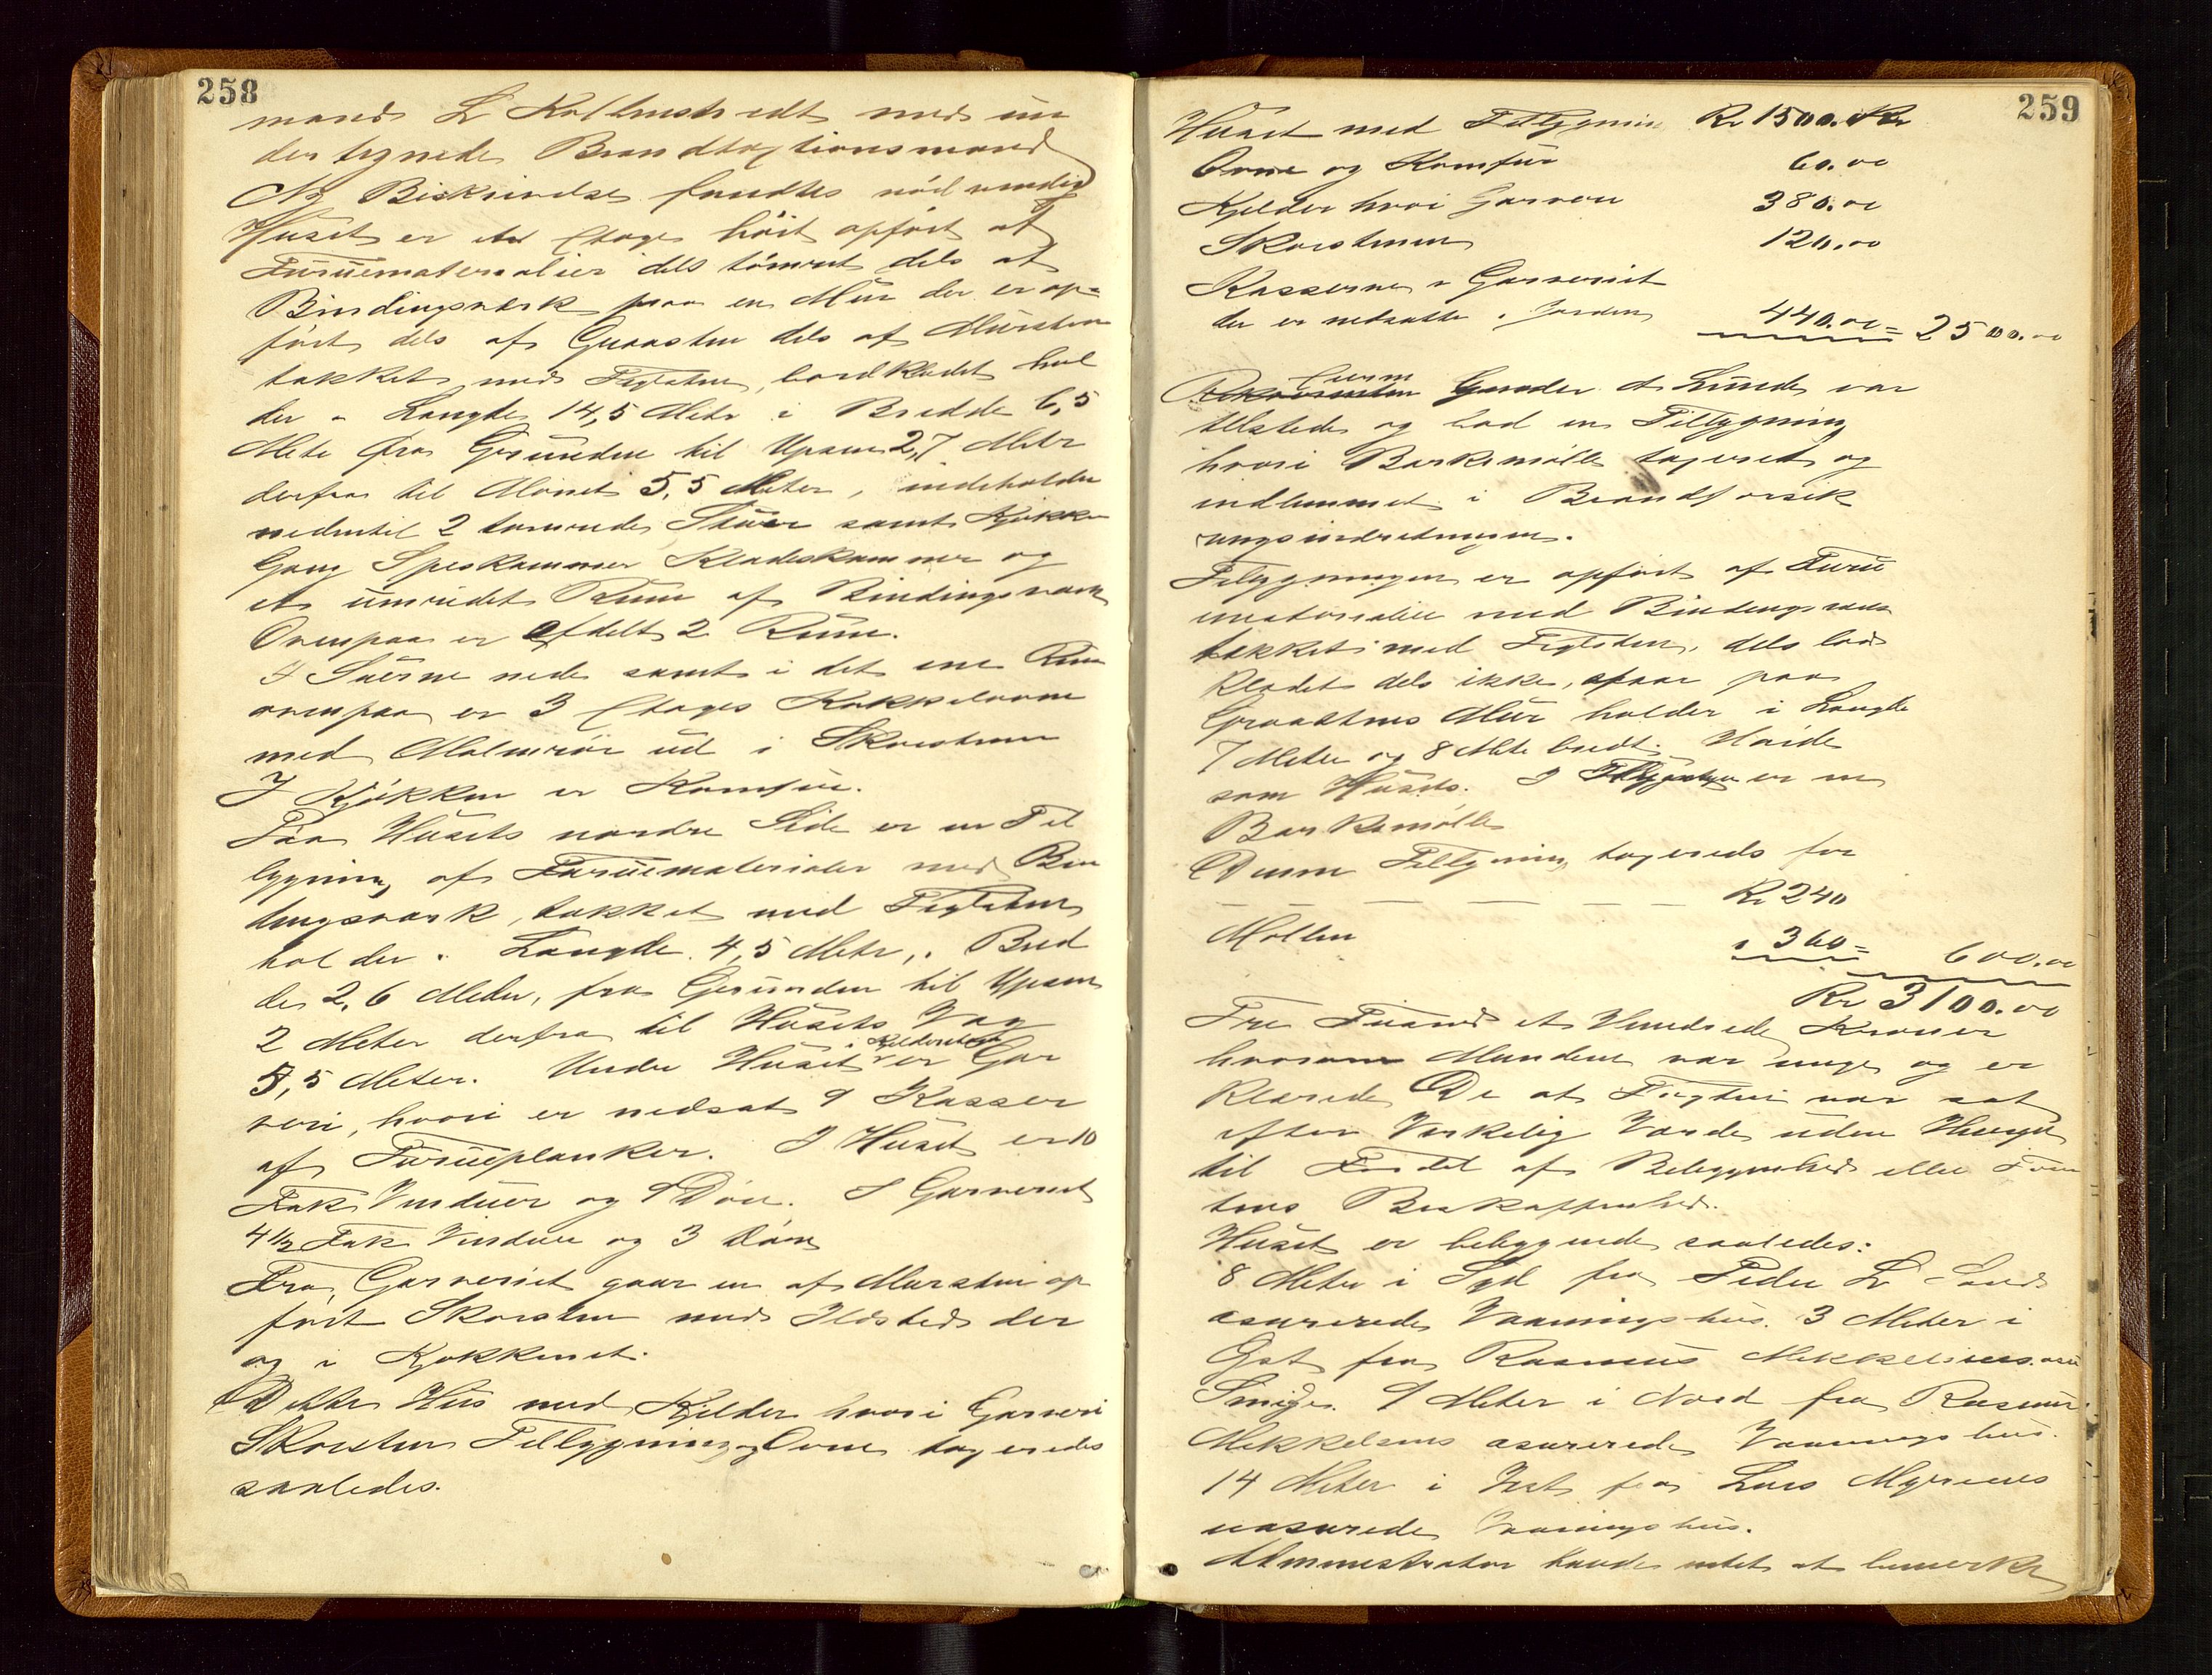 258
mand L Kolbenstvedt med un
dertegnede Brandtaxtionsmand
Ny Beskrivelse fandtes nödvendig
Huset er et Etages höit opfört af
Furuematerialier dels tömret dels af
Bindingsverk paa en Mur der er op=
fört dels af Graasten dels af Mursten
takket med Teglsten, bordklædet hol
der i Længde 14,5 Metr i Bredde 6,5
Mete fra Grunden til Upsen 2,7 Metr
derfra til Mönet 5,5 Meter, indeholder
nedentil 2 tømrede Stuer samt Kjøkke
Gang Spiskammer Klædeskammer og
et uinredet Rum af Bindingsværk
Ovenpaa er afdelt 2 Rum.
I Stuerne nede samt i det ene Rum
ovenpaa er 3 Etages Kakkelovne
med Malmrör ud i Skorstenen
I Kjökken er Komfur.
Paa Husets nordre Side er en Til
bygning af Furuematerialer med Bin
dingsværk, takket med Teglsten
holder i Længde 4,5 Metr, i Bred
de 2,6 Meter, fra Grunden til Upsen
2 Meter derfra til Husets Væg
3,5 Meter. Under Huset er Kjelderetage Gar
veri, hvori er nedsat 9 Kasser
af Furueplanker. I Huset er 10
Fak Vinduer og 9 Döre. I Garveriet
4 1/2 Fak Vinduer og 3 Döre
Fra Garveriet gaar en af Mursten op
fört Skorsten med Ildsted der
og i Kjøkkenet.
Dette Hus med Kjelder hvori Garveri
Skorsten Tilbygning og Ovne taxeredes
saaledes.
259
Huset med Tilbygning Kr 1500.
Ovne og Komfur 60.00
Kjelder hvori Garveri 380.00
Skorstenen 120.00
Kasserne i Garveriet
der er nedsatte i Jorden 440.00 = 2500.00
Gunder A Lunde var
tilstede og bad en Tilbygning
hvori Barkemölle taxeret og
indlemmet i Brandforsik
ringsindretningen.
Tilbygningen er opfört af Furu
materialier med Bindingsværk
takket med Teglsten, dels bord
klædet dels ikke, staar paa
Graastens Mur holder i Længde
7 Meter og 8 Mete bredt. Høide
som Husets. I Tilbygningen er en
Barkemölle
Denne Tilbygning taxeredes for
— — — — — Kr 240
Möllen " 360 = 600.00
Kr 3100.00
Tre Tusend et Hundrede Kroner
hvorom Mændene var enige og er
klærede De at Taxten var sat
efter Virkelig Værdi uden Hensyn
til Fordel af Beliggenhed eller Tom
tens Beskaffenhed.
Huset er beliggende saaledes:
8 Meter i Syd fra Peder L Lunds
asurerede Vaaningshus. 3 Meter i
Øst fra Rasmus Mikkelsens
Smidje. 9 Meter i Nord fra Rasmus
Mikkelsens asurerede Vaaningshus.
14 Meter i Vest fra Lars Myrenes
uasurede Vaaningshus.
Administrator havde intet at bemerke